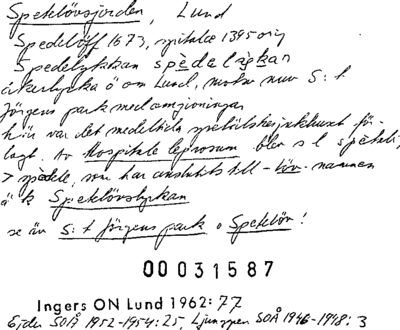 Speklövsjorden, Lund
Spedelöff 1673, spitalæ 1395 orig
Spedelyckan spedelėckan
åkerlycka ö om Lund, motsv nuv S:t
Jörgens park med omgivningar
här var det medeltida spetälskesjukhuset för-
lagt. Av Hospitale leprosorum blev s l spetali,
> spedele, som har anslutits till -löv-namnen
jä k Speklövslyckan
se äv S:t Jörgens park o Speklöv!
00031587
Ingers ON Lund 1962: 77
Ejder SOÅ 1952-1954: 25, Ljunggren SOÅ 1946-1948: 3